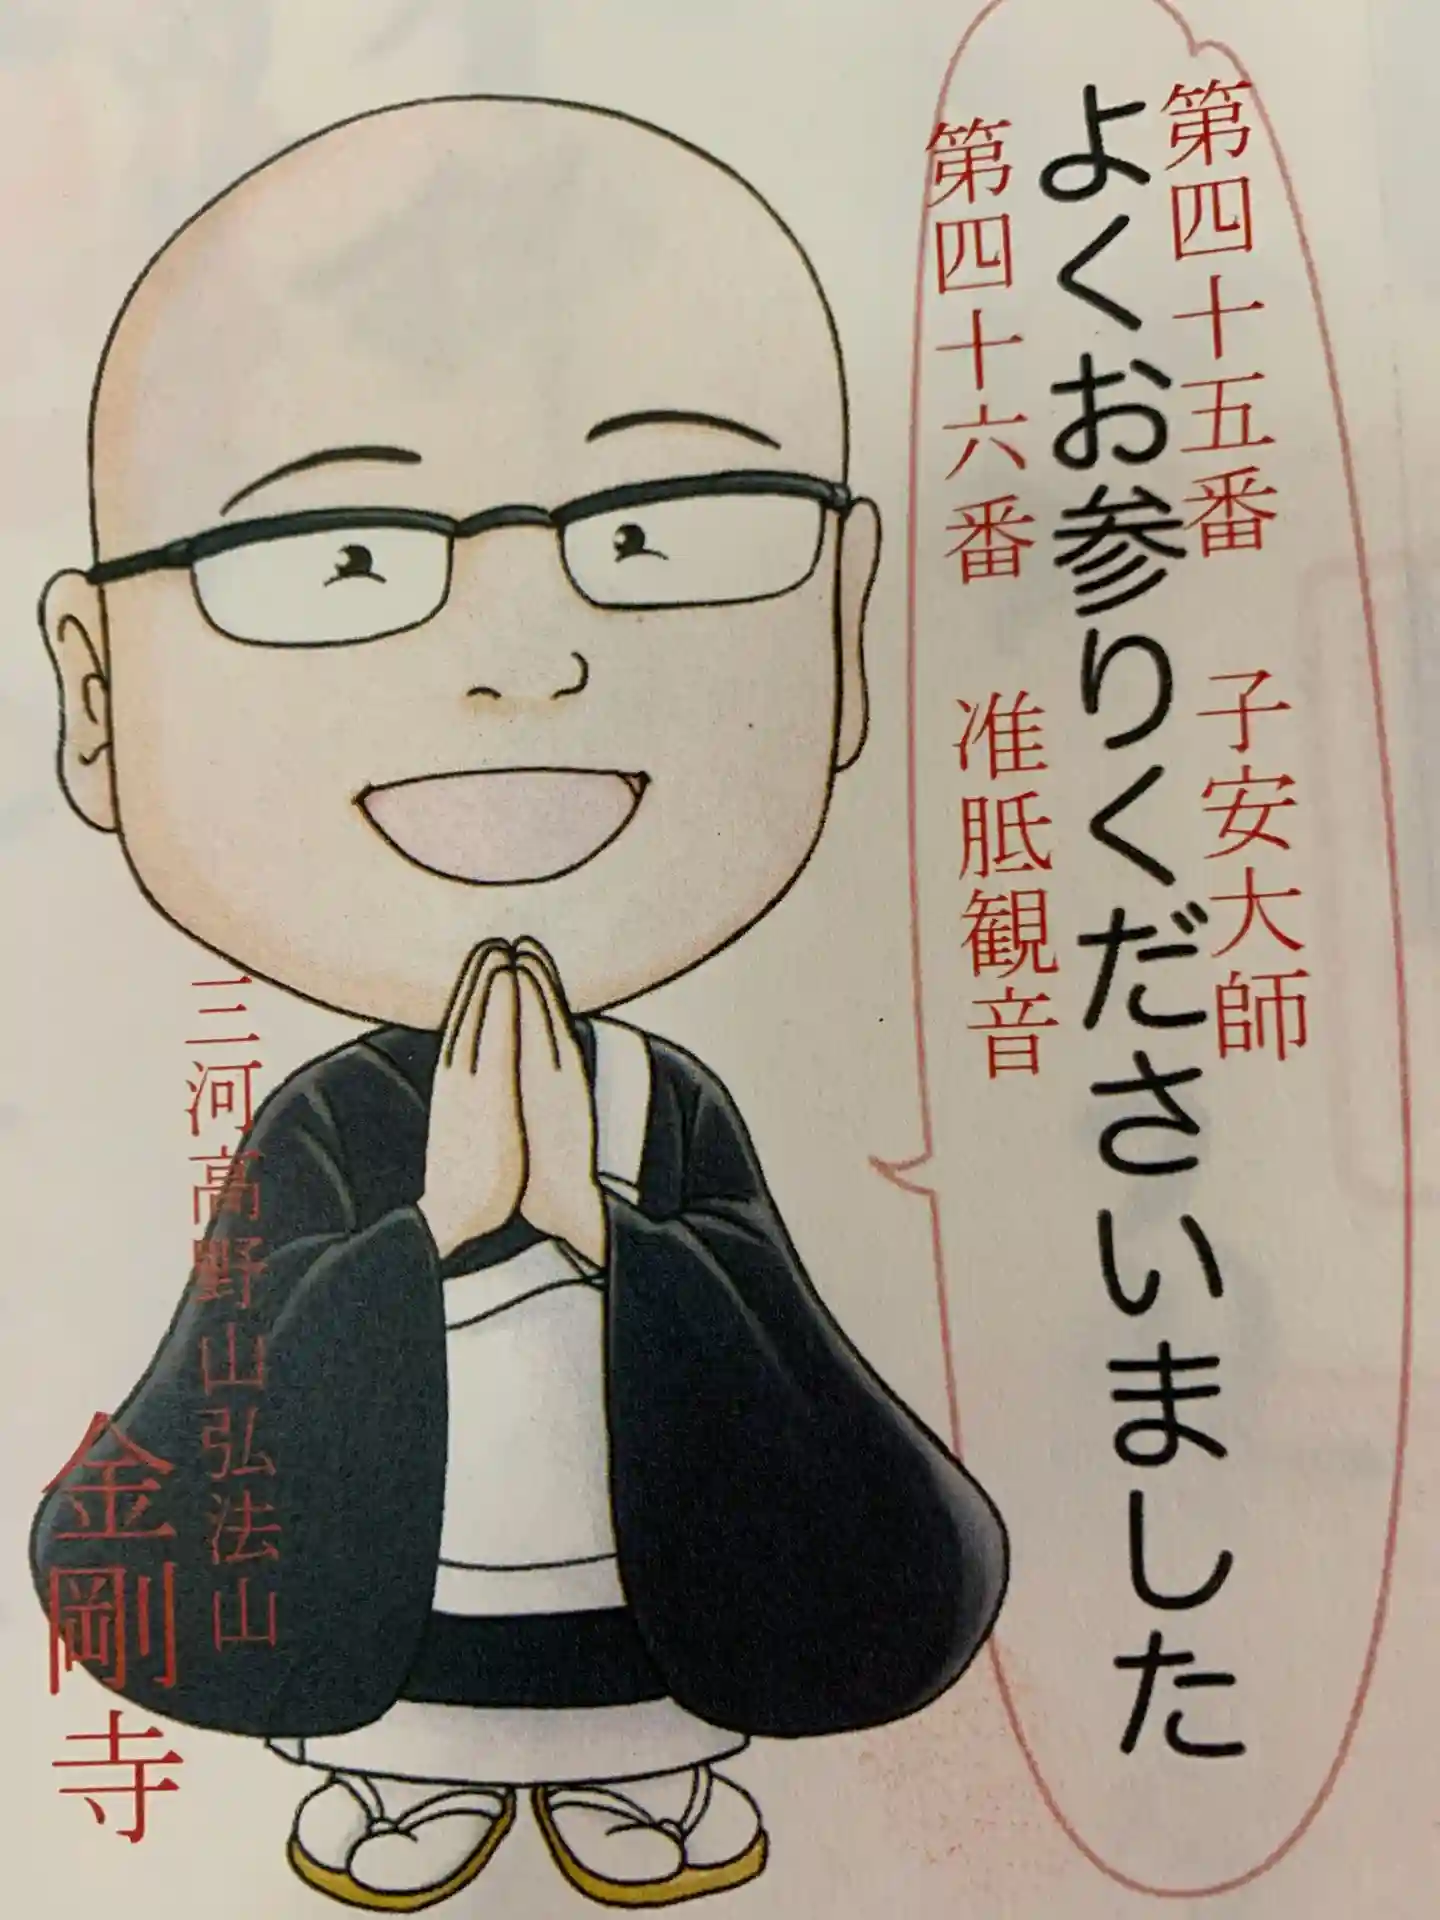 第四十五番 子安大師
よくお参りくださいました
第四十六番 准胝観音
三河高野山弘法山
金剛寺